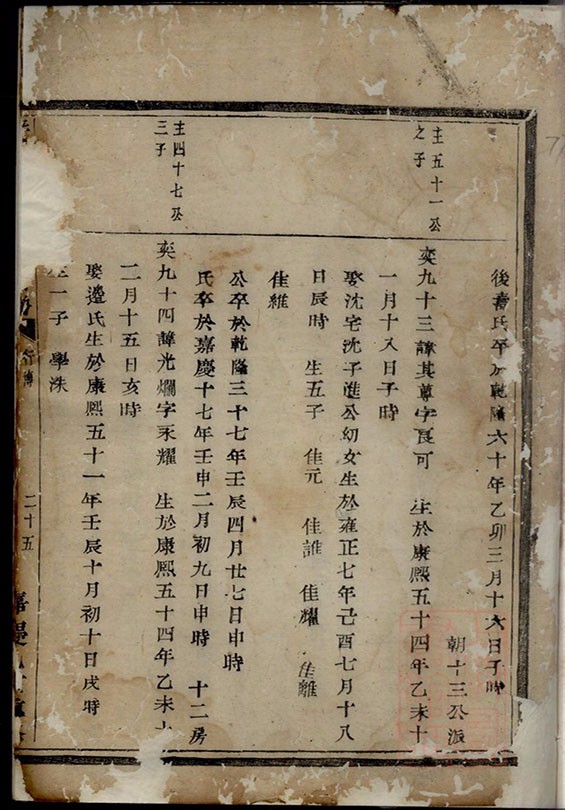 後 氏卒於乾隆六十年乙卯三月十六日子時
朝十三公派
主五十一公
之子
奕九十三諱其尊字良可 生於康熙五十四年乙未十
一月十八日子時
娶沈宅沈子進公幼女生於雍正七年己酉七月十八
日辰時 生五子 佳元 佳誰 佳耀 佳離
佳維
公卒於乾隆三十七年壬辰四月廿七日申時
氏卒於嘉慶十七年壬申二月初九日申時 十二房
主四十七公
三子
奕九十四諱光爛字永耀 生於康熙五十四年乙未十
二月十五日亥時
娶邊氏生於康熙五十一年壬辰十月初十日戌時
生一子 學洙
行傳
二十五